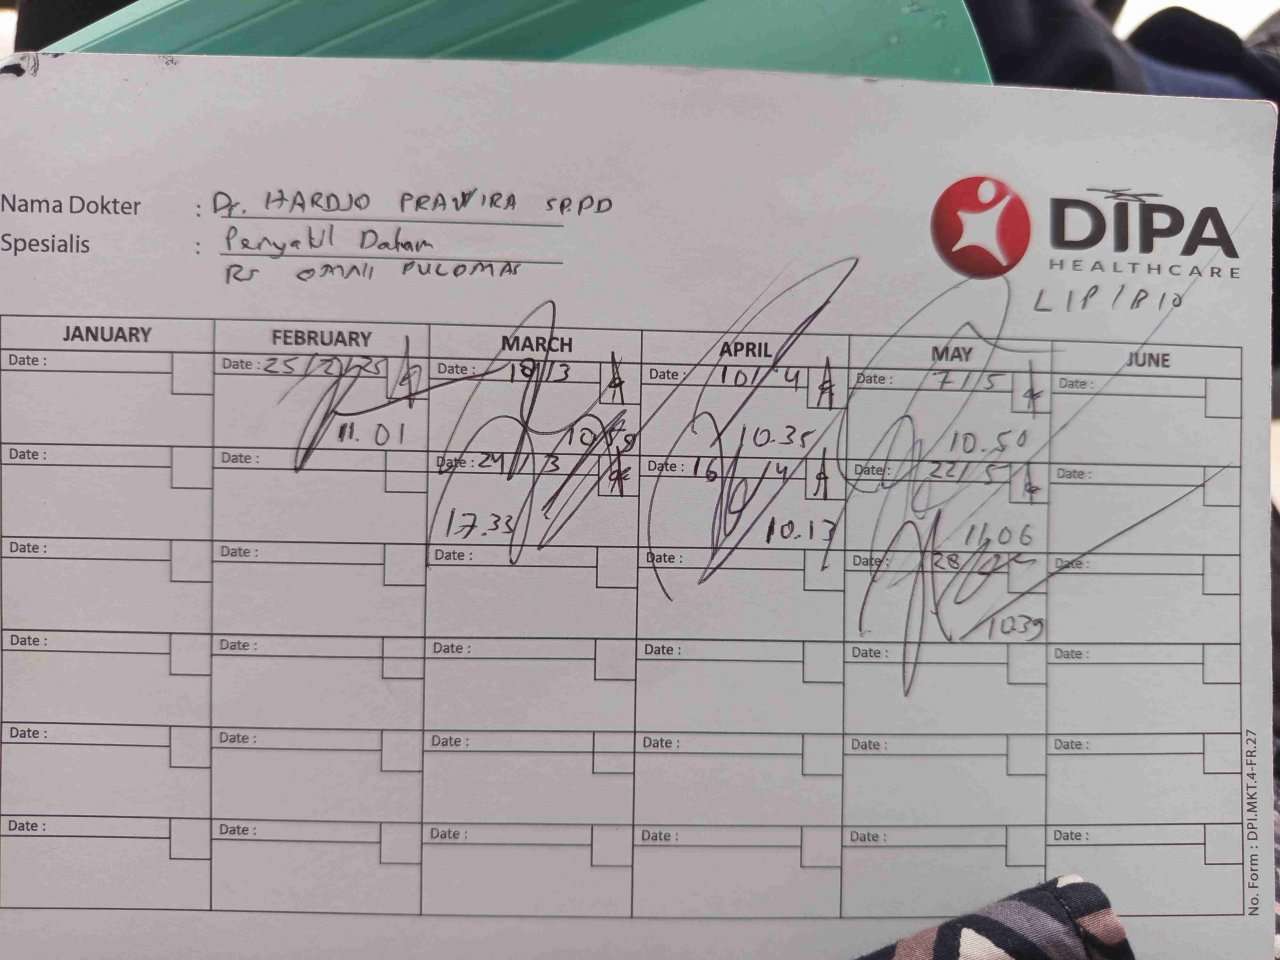 Nama Dokter : Dr. HARDJO PRAWIRA SP.PD
Spesialis : Penyakit Dalam
RS OMNI PULOMAS
DIPA
HEALTHCARE
LIP / B10
JANUARY FEBRUARY MARCH APRIL MAY JUNE
Date : Date : 25/2/25 Date : 18/3 Date : 10/4 Date : 7/5 Date :
11.01 10.35 10.50
Date : Date : Date : 24/3 Date : 16/4 Date : 22/5 Date :
17.33 10.13 11.06
Date : Date : Date : Date : Date : 28/ Date :
1039
Date : Date : Date : Date : Date : Date :
Date : Date : Date : Date : Date : Date :
Date : Date : Date : Date : Date : Date :
No. Form : DPI.MKT.4-FR.27